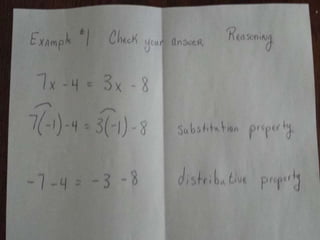 Example #1 Check your answer Reasoning
7x - 4 = 3x - 8
7(-1) - 4 = 3(-1) - 8 substitution property
-7 - 4 = -3 - 8 distributive property